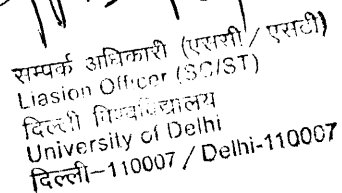 सम्पर्क अधिकारी (एससी / एसटी)
Liasion Officer (SC/ST)
दिल्ली विश्वविद्यालय
University of Delhi
दिल्ली–110007 / Delhi-110007